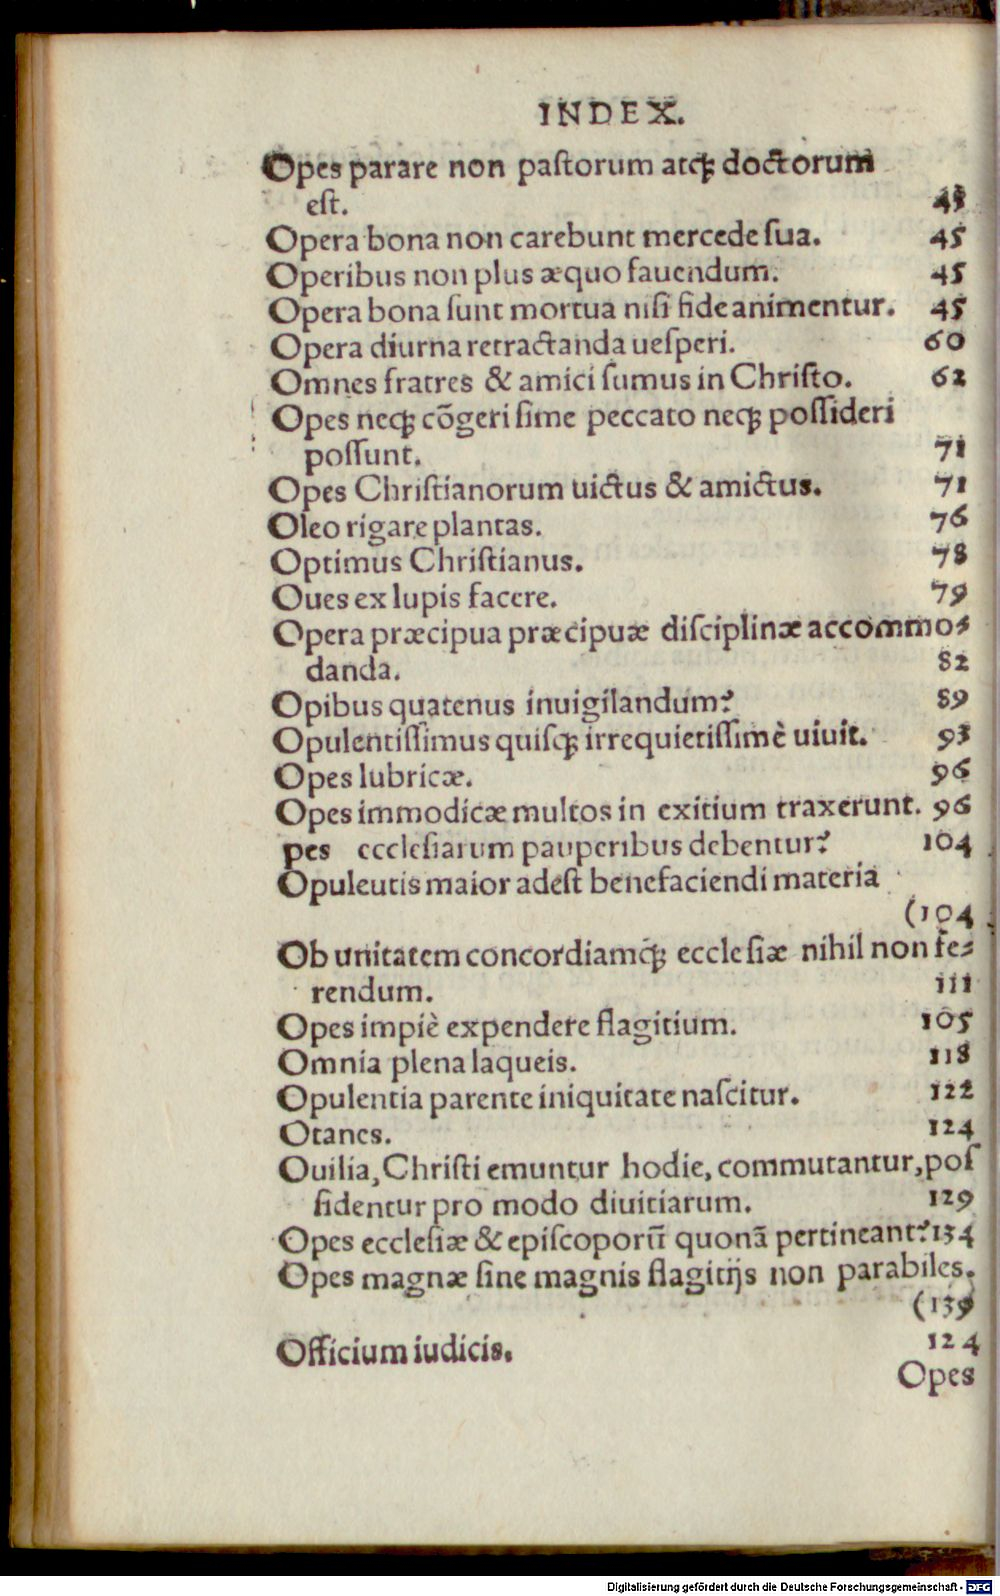 INDEX.
Opes parare non pastorum atqꝫ doctorum
est. 45
Opera bona non carebunt mercede sua. 45
Operibus non plus æquo fauendum. 45
Opera bona sunt mortua nisi fide animentur. 45
Opera diurna retractanda uesperi. 60
Omnes fratres & amici sumus in Christo. 62
Opes neqꝫ cōgeri sime peccato neqꝫ possideri
possunt. 71
Opes Christianorum uictus & amictus. 71
Oleo rigare plantas. 76
Optimus Christianus. 78
Oues ex lupis facere. 79
Opera præcipua præcipuæ disciplinæ accommo⸗
danda. 82
Opibus quatenus inuigilandum? 89
Opulentissimus quisqꝫ irrequietissimè uiuit. 93
Opes lubricæ. 96
Opes immodicæ multos in exitium traxerunt. 96
pes ecclesiarum pauperibus debentur? 104
Opuleutis maior adest benefaciendi materia
(104
Ob unitatem concordiamq̃ꝫ ecclesiæ nihil non fe⸗
rendum. 111
Opes impiè expendere flagitium. 105
Omnia plena laqueis. 118
Opulentia parente iniquitate nascitur. 122
Otanes. 124
Ouilia, Christi emuntur hodie, commutantur, pos
sidentur pro modo diuitiarum. 129
Opes ecclesiæ & episcoporū quonā pertineant? 134
Opes magnæ sine magnis flagitijs non parabiles.
(139
Officium iudicis. 124
Opes
Digitalisierung gefördert durch die Deutsche Forschungsgemeinschaft - DFG